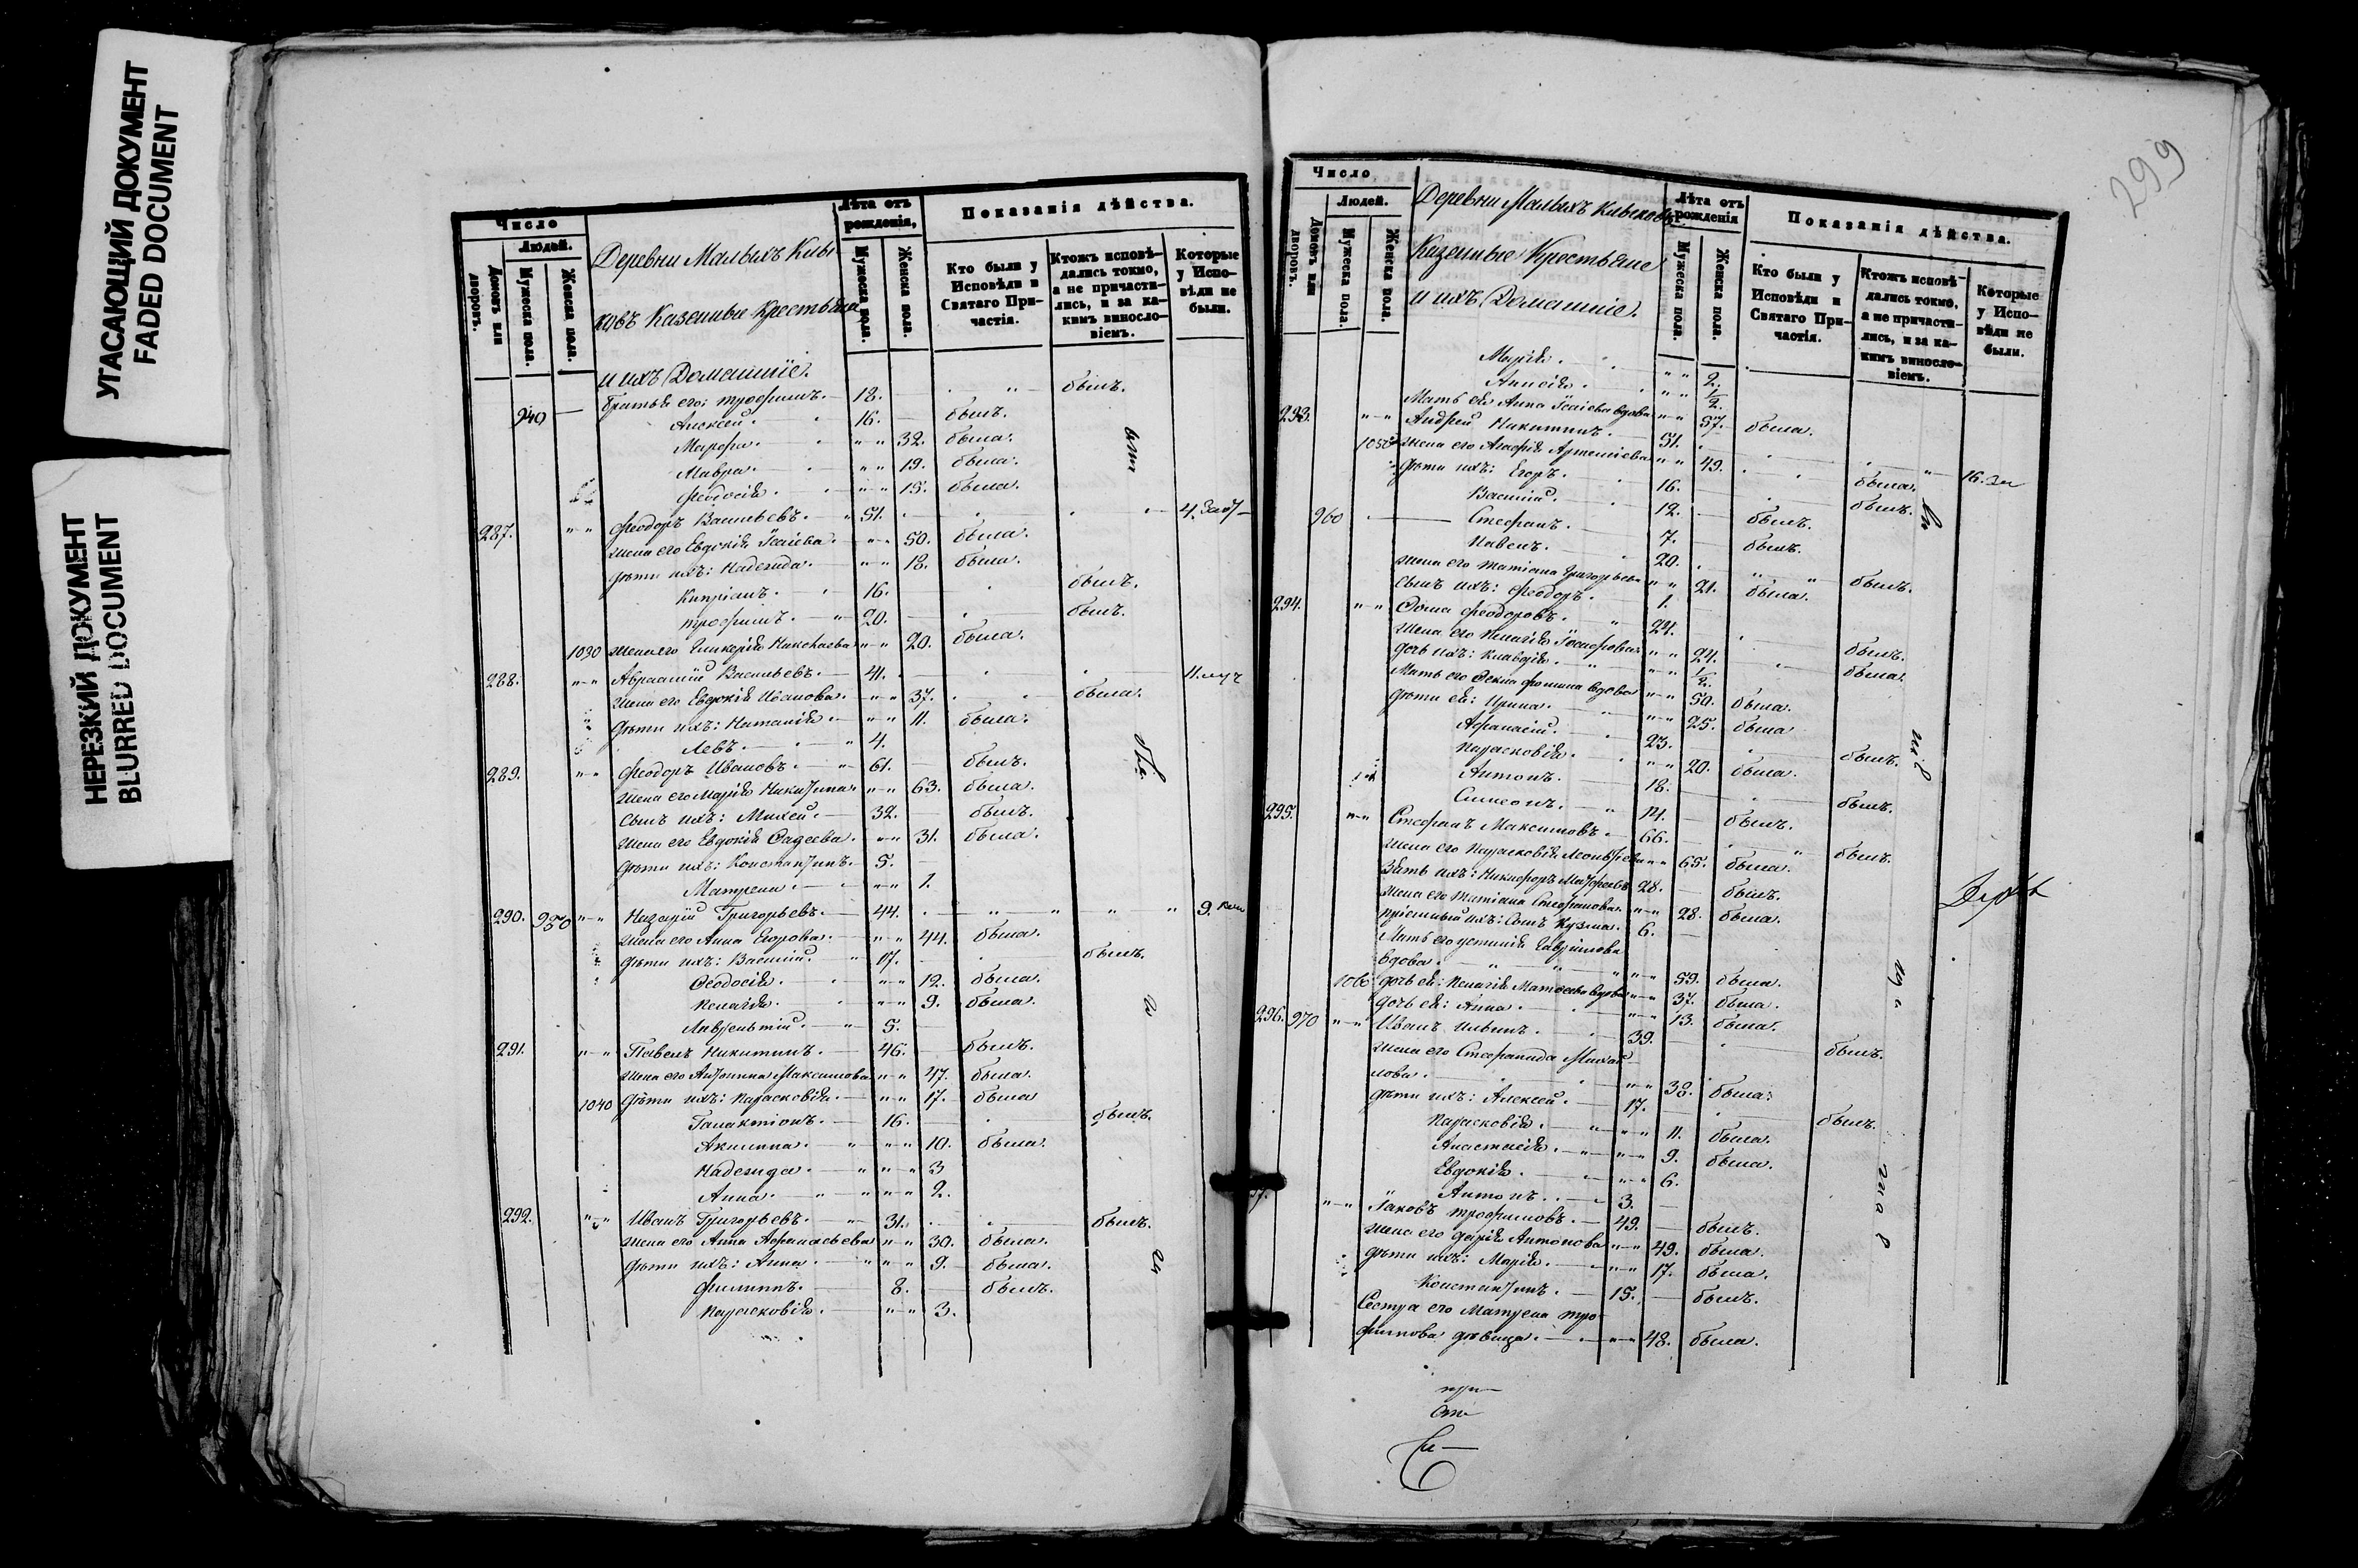 УГАСАЮЩИЙ ДОКУМЕНТ
FADED DOCUMENT
НЕРЕЗКИЙ ДОКУМЕНТ
BLURRED DOCUMENT
Число
Людей.
Домовъ или дворовъ.
Мужеска пола.
Женска пола.
Деревни Малыхъ Кивы
ковъ Казенные Крестьяне
и ихъ Домашніе.
Лѣта отъ рожденія,
Мужеска пола.
Женска пола.
Показанія дѣйства.
Кто были у Исповѣди и Святаго Причастія.
Ктожъ исповѣдались токмо, а не причастились, и за какимъ винословіемъ.
Которые у Исповѣди не были.
940 — братья его: Трофимъ. 18. былъ.
Алексей. 16. былъ.
Марфа. 32. была.
Мавра. 19. была.
Феодосія. 15. была.
287. Феодоръ Васильевъ. 51. 4.
жена его Евдокія Ісаіева. 50. была.
дѣти ихъ: Надежда. 18. была.
Кипріанъ. 16. былъ.
Трофимъ. 20. былъ.
1030 жена его Гликерія Николаева 20. была.
288. Авраамій Васильевъ. 41. 11.
жена его Евдокія Иванова. 37. была.
дѣти ихъ: Наталія. 11. была.
Левъ. 4.
289. Феодоръ Ивановъ. 61. былъ.
жена его Марія Никитина 63. была.
сынъ ихъ: Михей. 32. былъ.
жена его Евдокія Фадеева. 31. была.
дѣти ихъ: Константинъ. 5.
Матрена. 1.
290. 950 Назарій Григорьевъ. 44. 9.
жена его Анна Егорова. 44. была.
дѣти ихъ: Василій. 17. былъ.
Феодосія. 12. была.
Пелагія. 9. была.
Лаврентій. 5.
291. Павелъ Никитинъ. 46. былъ.
жена его Антонина Максимова 47. была.
1040 дѣти ихъ: Парасковія. 17. была
Галактіонъ. 16. былъ.
Акилина. 10. была.
Надежда. 3
Анна. 2.
292. Иванъ Григорьевъ. 31. былъ.
жена его Анна Афанасьева 30. была.
дѣти ихъ: Анна. 9. была.
Филиппъ. 8. былъ.
Парасковія. 3.
299
Число
Людей.
Домовъ или дворовъ.
Мужеска пола.
Женска пола.
Деревни Малыхъ Кивыковъ
Казенные Крестьяне
и ихъ Домашніе.
Лѣта отъ рожденія
Мужеска пола.
Женска пола.
Показанія дѣйства.
Кто были у Исповѣди и Святаго Причастія.
Ктожъ исповѣдались токмо, а не причастились, и за какимъ винословіемъ.
Которые у Исповѣди не были.
Марія. 2.
Анисія. 1/2.
Мать ея Анна Ісаіева вдова 57. была.
293. Андрей Никитинъ. 51. 16.
1050 жена его Агафія Артеміева 49. была.
дѣти ихъ: Егоръ. 16. былъ.
Василій. 12. былъ.
960 Стефанъ. 7. былъ.
Павелъ. 20. былъ.
жена его Татіана Григорьева 21. была.
сынъ ихъ: Феодоръ. 1.
294. Фома Феодоровъ. 24. былъ.
жена его Пелагія Іосифова 24. была.
дочь ихъ: Клавдія. 1/2.
Мать его Фекла Фомина вдова 50. была.
дѣти ея: Ирина. 25. была
Афанасій. 23. былъ.
Парасковія. 20. была.
Антонъ. 18. былъ.
Симеонъ. 14. былъ.
295. Стефанъ Максимовъ. 66. былъ.
жена его Парасковія Леонтьева 65. была.
Зять ихъ: Никифоръ 28. былъ.
жена его Татіана Стефанова 28. была.
пріемный ихъ: сынъ Кузма. 6.
Мать его Устинія Гаврилова
вдова. 59. была.
1060 дочь ея: Пелагія Матвеева вдова 37. была.
дочь ея: Анна. 13. была.
296. 970 Иванъ Ильинъ. 39. былъ.
жена его Стефанида Михай-
лова. 38. была.
дѣти ихъ: Алексей. 17. былъ.
Парасковія. 11. была.
Анастасія. 9. была.
Евдокія. 6.
Антонъ. 3.
Іаковъ Трофимовъ. 49. былъ.
жена его Дарія Антонова 49. была.
дѣти ихъ: Марія. 17. была.
Константинъ. 15. былъ.
Сестра его Матрена Тро-
фимова дѣвица. 48. была.